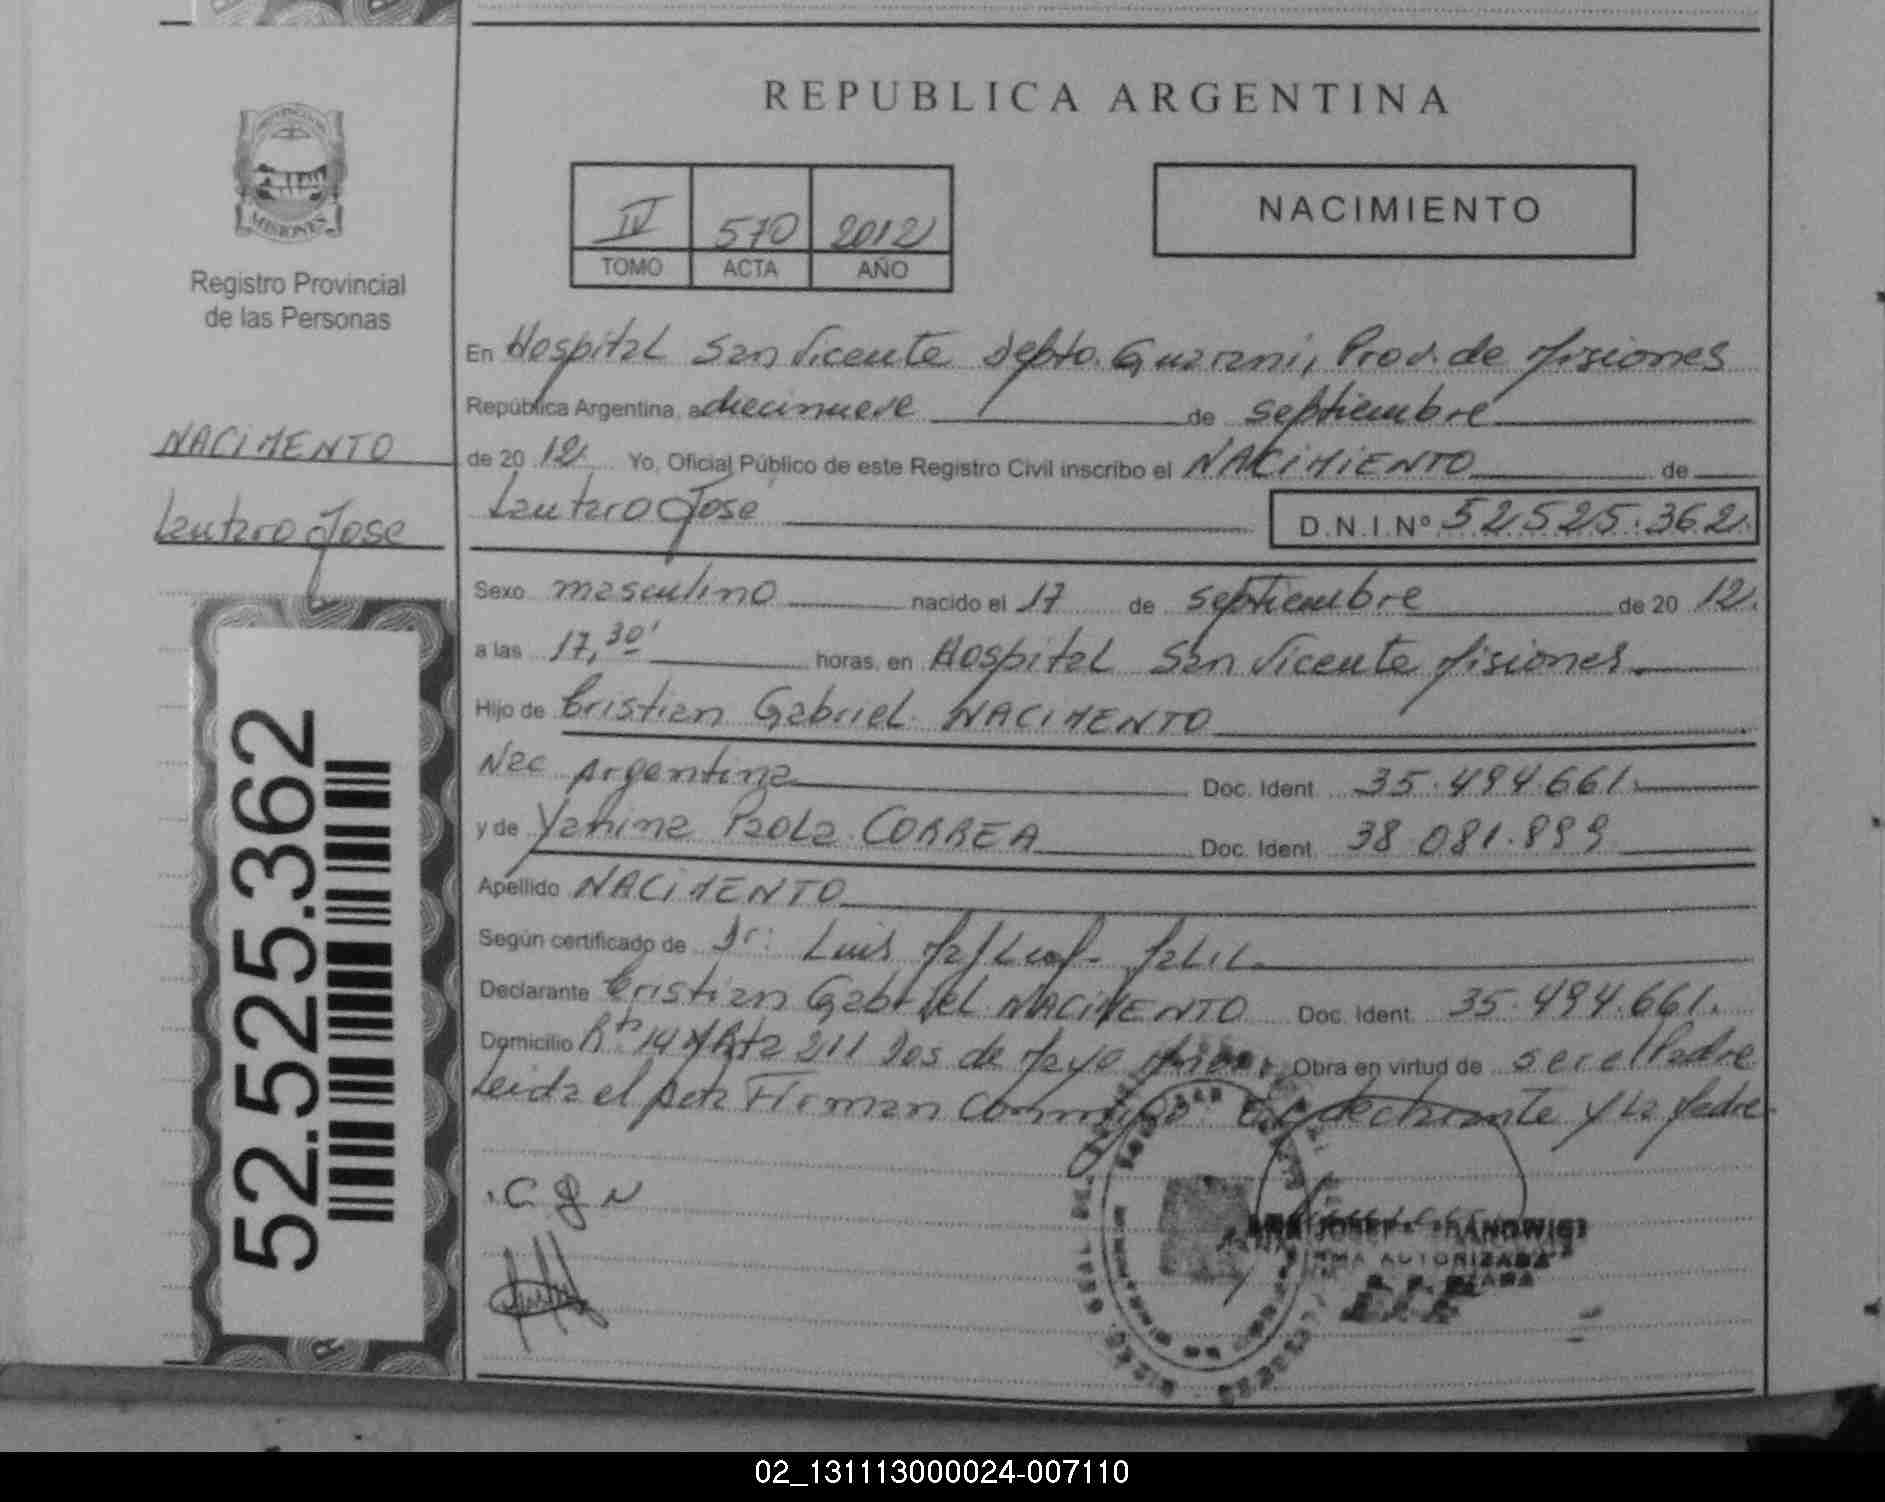 REPUBLICA ARGENTINA
PROVINCIA DE
MISIONES
Registro Provincial
de las Personas
IV 570 2012
TOMO ACTA AÑO
NACIMIENTO
NACIMENTO
Lautaro Jose
52.525.362
En Hospital San Vicente Depto. Guarani, Prov. de Misiones
República Argentina, a diecinueve de septiembre
de 2012 Yo, Oficial Público de este Registro Civil inscribo el NACIMIENTO de
Lautaro Jose D.N.I.Nº 52.525.362.
Sexo masculino nacido el 17 de septiembre de 2012.
a las 17,30' horas, en Hospital San Vicente Misiones.
Hijo de Cristian Gabriel NACIMENTO
Nac Argentina Doc. Ident. 35.494.661.
y de Yanina Paola CORREA Doc. Ident. 38.081.899
Apellido NACIMENTO
Según certificado de Dr: Luis
Declarante Cristian Gabriel NACIMENTO Doc. Ident. 35.494.661.
Domicilio Rta 14 y Rta 211 Dos de Mayo Obra en virtud de ser el Padre
Leida el acta Firman Conmigo El declarante y la Madre.
C G N
FIRMA AUTORIZADA
02_131113000024-007110